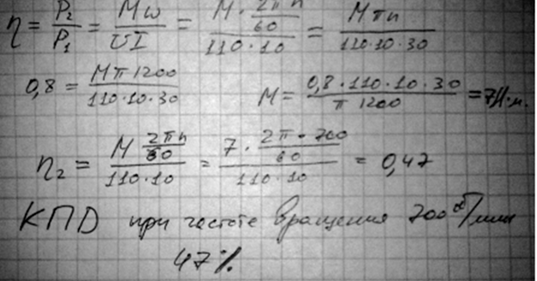 η = P₂/P₁ = Mω/UI = (M · 2πn/60)/(110·10) = Mπn/(110·10·30)
0,8 = Mπ1200/(110·10·30)    M = (0,8·110·10·30)/(π 1200) = 7 Н·м.
η₂ = (M 2πn/60)/(110·10) = (7 · 2π·700/60)/(110·10) = 0,47
КПД при частоте вращения 700 об/мин
47%